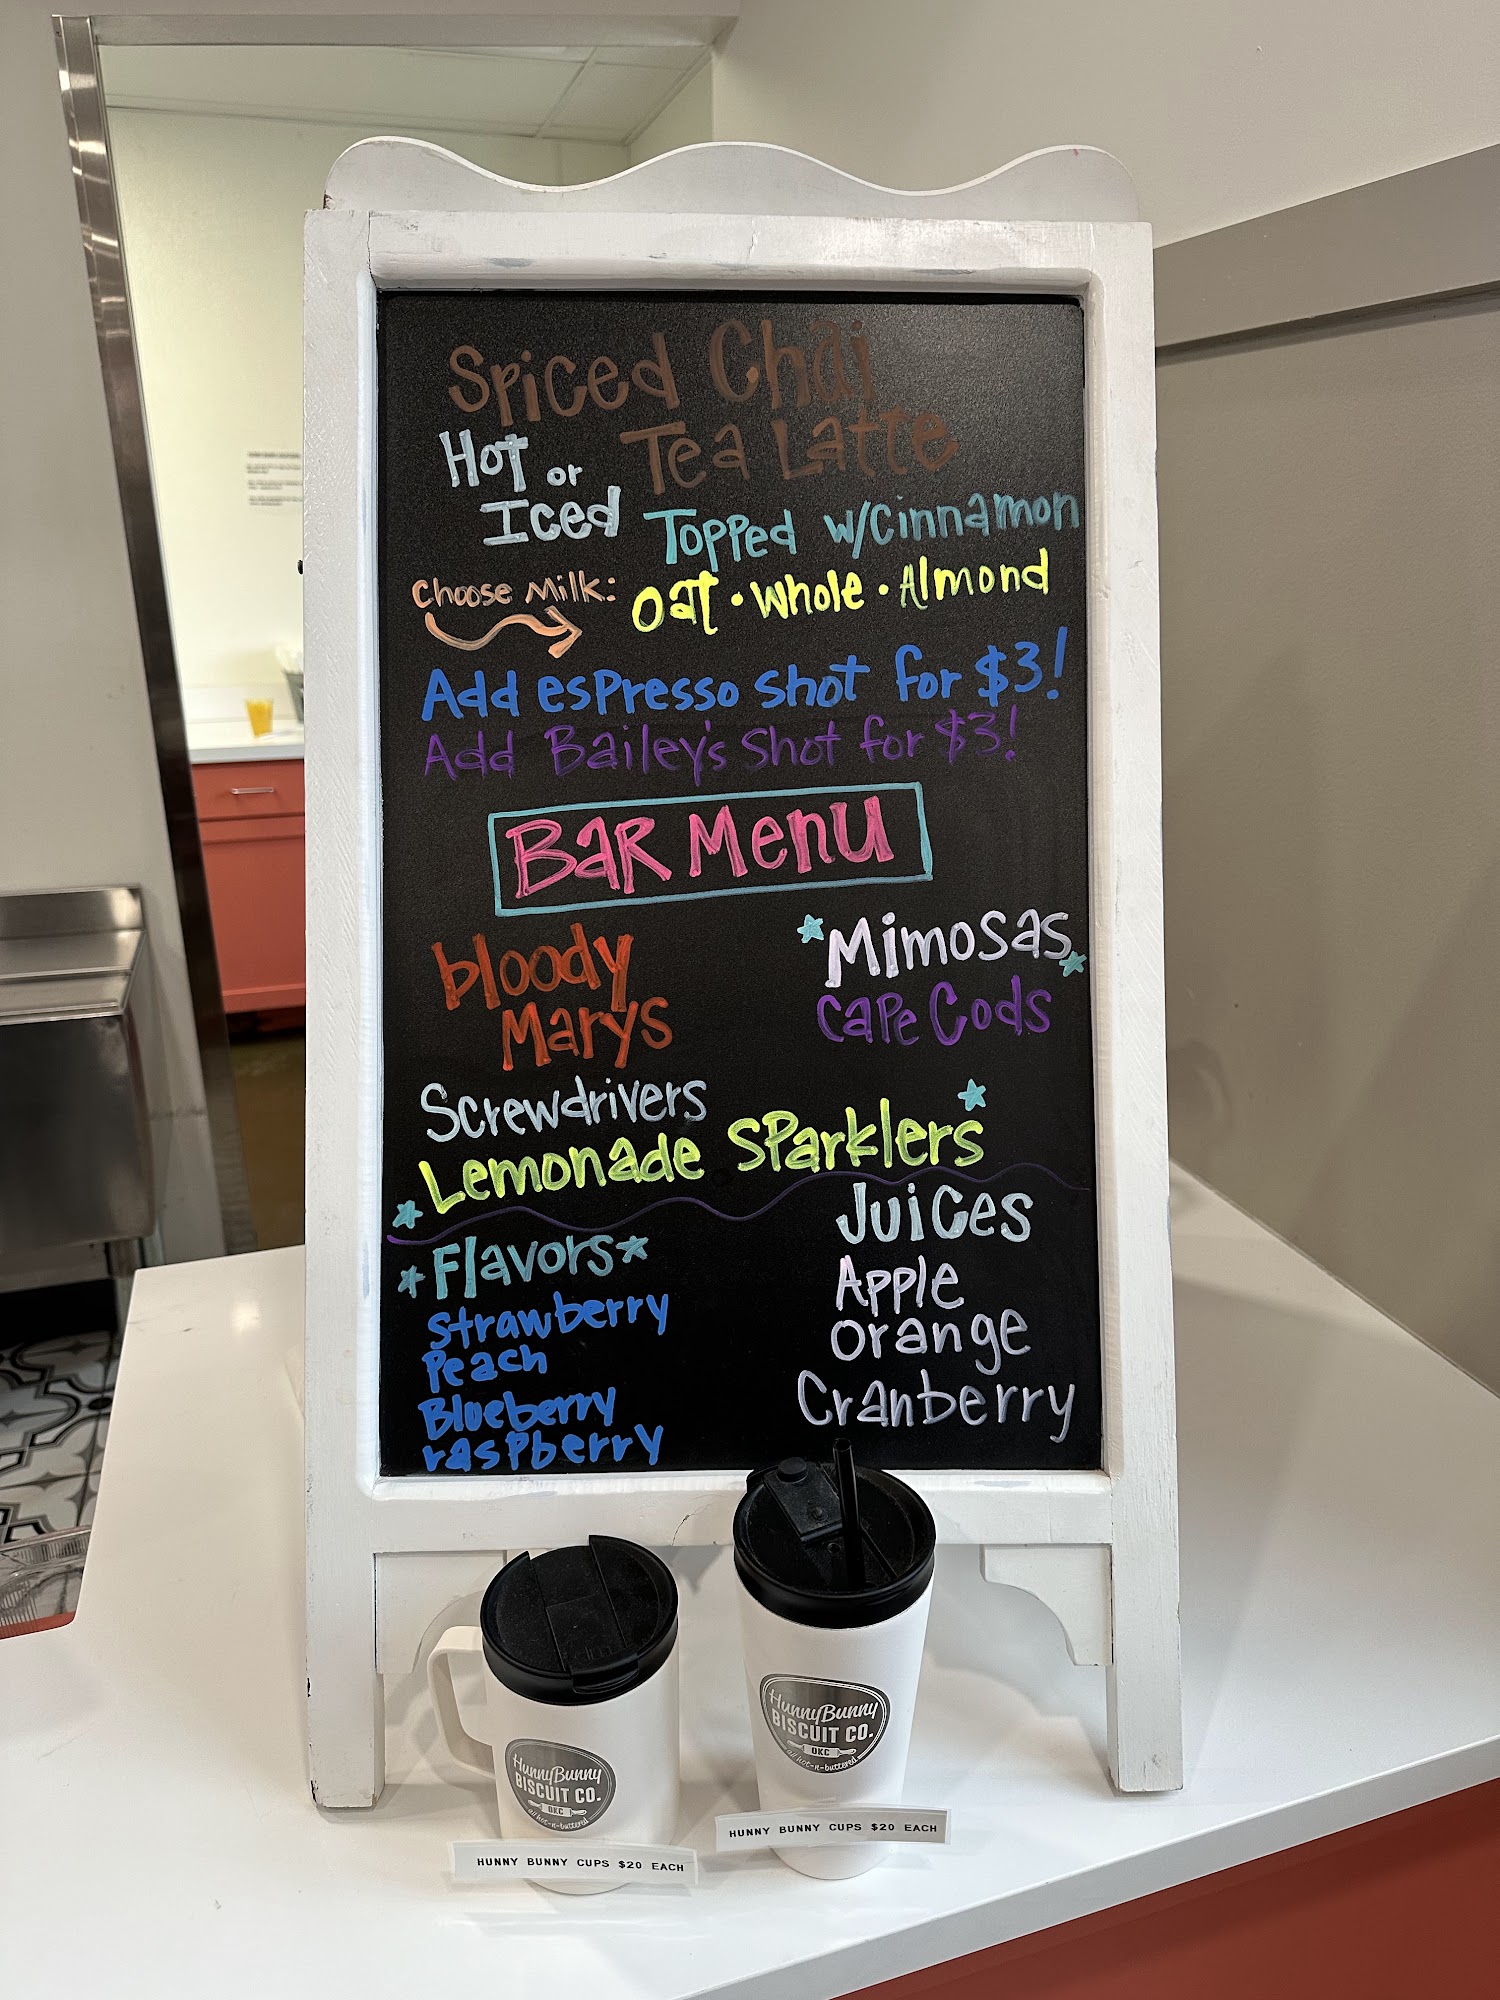 Spiced Chai
Tea Latte
Hot or
Iced
Topped w/Cinnamon
Choose Milk:
Oat • Whole • Almond
Add espresso shot for $3!
Add Bailey's Shot for $3!
Bar Menu
bloody
Marys
Mimosas
Cape Cods
Screwdrivers
Lemonade Sparklers
Flavors
Strawberry
Peach
Blueberry
raspberry
Juices
Apple
Orange
Cranberry
HunnyBunny
BISCUIT CO.
OKC
all hot-n-buttered
HUNNY BUNNY CUPS $20 EACH
HunnyBunny
BISCUIT CO.
OKC
all hot-n-buttered
HUNNY BUNNY CUPS $20 EACH